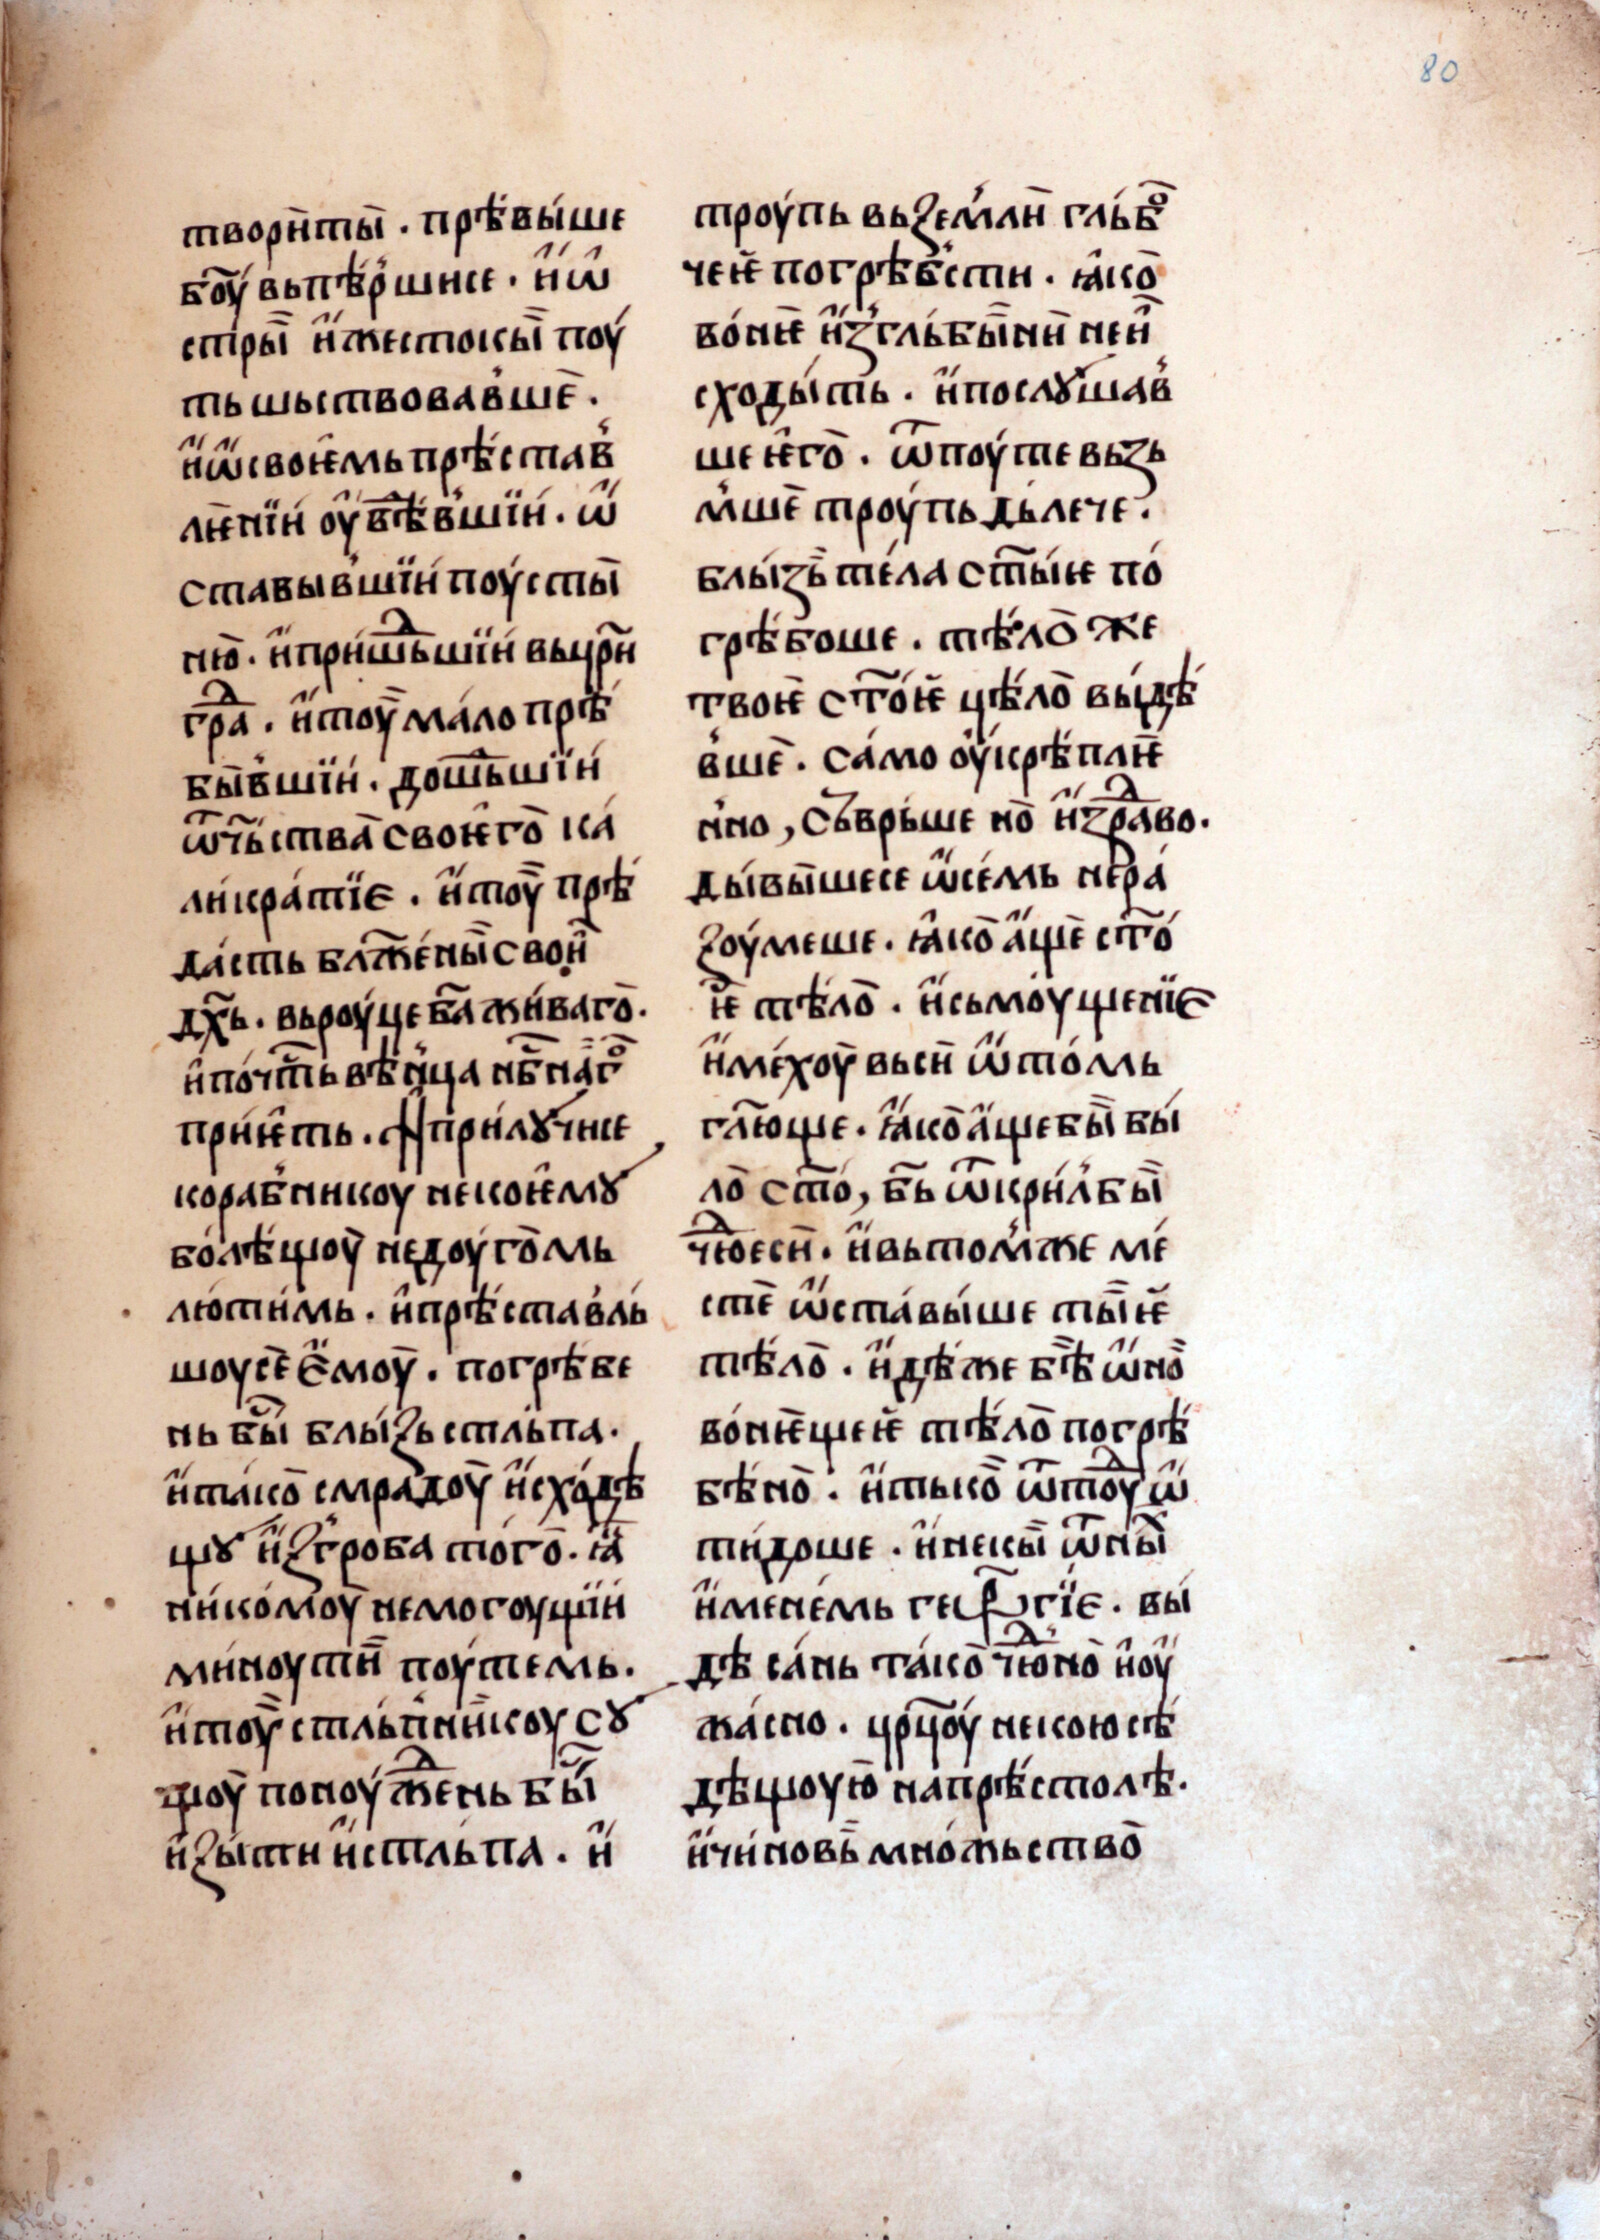 80
творѝти̑ . прѣвы́ше
бо҃у вьпѣ́ршисе . и҆ ѡ҆
стры̑ и҆ жестокы̑ поу́
ть шьствовав̾ше̑ .
и҆ ѡ҆ своѥ҆мь прѣ́став̾
лѥ́нїи оу҆вѣ́в̾шїи . ѡ҆
ставыв̾шїи́ поу́сты̑
ню̑ . и҆ приш́ⷣьшїи вьцр҃и
граⷣ . и҆ тоу̑ ма́ло прѣ́
бы́в̾шїи́ . дошⷣьшїи́
ѿч҃ьства̑ своѥго̑ ка́
ликра́тїе . и҆ тоу̑ прѣ́
да́сть блаже́ны̑ свои̑
дх҃ь . вьроу́це ба҃ жи́ваго̑ .
и҆ по́чтⷭь вѣн̾ца нб҃на́гоⷢ
при́ѥть . И҆ прилꙋ́чисе
кораб̾никоу некоѥ҆мꙋ
бо́лѣ́щоу̑ недоу́го̑мь
лю́ти́мь . и҆ прѣ́ставлꙗ́
шоусе̑ є҆моу̑ . погрѣ́бе
нь быⷭ҇ блы́зь стль́па .
и҆ та́ко̑ смра́доу̑ и҆схо́дѣ
щꙋ и҆з̾гро́ба то́го̑ . ꙗ҆
ни́ко́моу̑ немогоущїи́
ми́ноути̑ поу́темь .
и҆ тоу̑ стль́п̾ни̑коу сꙋ
щоу̑ поноу́ⷣжень быⷭ҇
и҆зы́ти и҆стль́па . и҆
троу́пь вьзе́м̾ли глꙗ́боⷦ
чеѥ̑ погрѣ́б̾сти . ꙗ҆ко̑
во́нꙗ и҆з̾глꙗ́бы̑ни̑ неи̑
сходы́ть . и҆ послꙋ́шав̾
ше ѥ҆го̑ . ѿпоу́те вьзь
м̾ше̑ троу́пь да́лече .
блы́зь̑ те́ла ст҃ы́ѥ по́
грѣ́боше . тѣ́ло̑ же
твоѥ̑ ст҃о́ѥ цѣ́ло̑ вы́дѣ́
в̾ше̑ . са́мо оу҆крѣ́плѥ̑
н̾но , съврь́ше но̑ и҆ зⷣраво .
ды́вы̑шесе ѡ҆семь нера́
зоу́меше . ꙗ҆ко̑ а҆ще̑ ст҃о́
ѥ тѣ́ло̑ . и҆ сьмоу́щенїе
и҆ме́хоу̑ вьси̑ ѡ҆ то́мь
гл҃юще . ꙗ҆ко̑ а҆ще бы̑ бы́
ло̑ ст҃о́ , бг҃ь ѿкри́л̾ бы̑
чюⷣеси̑ . и҆ вьтом̾же ме́
сте̑ ѡ҆ста́вы́ше ты̑ѥ̑
тѣ́ло̑ . и҆дѣ́же бѣ̑ ѡ҆но̑
во́нѥщеѥ̑ тѣ́ло̑ погрѣ́
бѣ́но̑ . и҆ тько̑ ѿтоуⷣ ѡ҆
ти́доше . и҆ некы̑ ѿны̑
и҆ме́не́мь геѡⷬ҇гїе . вы́
дѣ са́нь та́ко̑ чюⷣно̑ и҆ оу҆
жа́сно . црц҃оу́ некою сѣ́
дѣщоую̑ напрѣ́столѣ .
и҆ чи́новь̑ мно́жьство̑